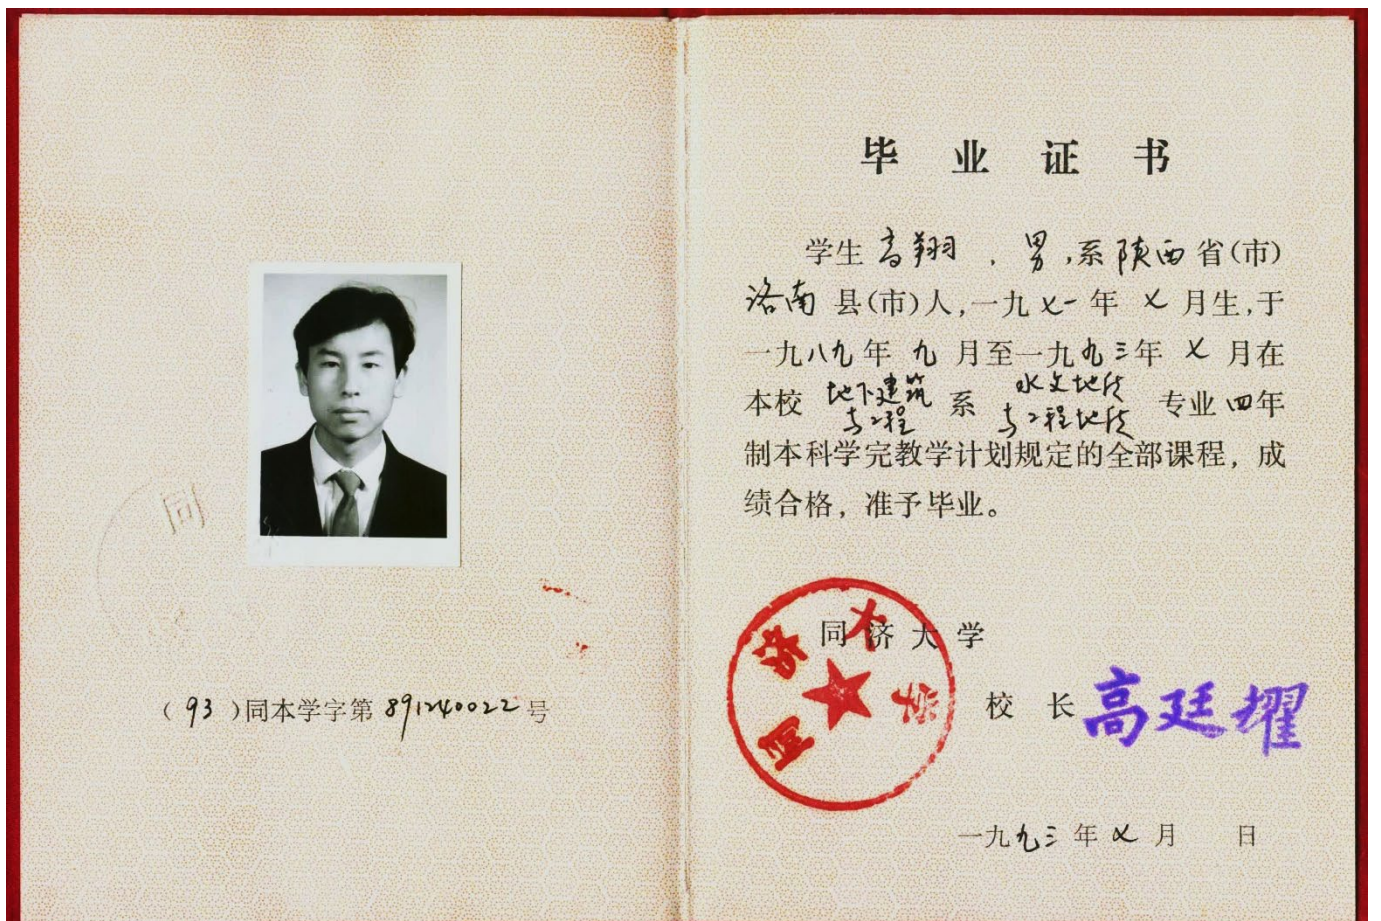 同
(93)同本学字第891240022号
毕业证书
学生高翔，男，系陕西省(市)
洛南县(市)人，一九七一年七月生，于
一九八九年九月至一九九三年七月在
本校地下建筑与工程系水文地质与工程地质专业四年
制本科学完教学计划规定的全部课程，成
绩合格，准予毕业。
同济大学
同济大学
校长高廷耀
一九九三年七月 日